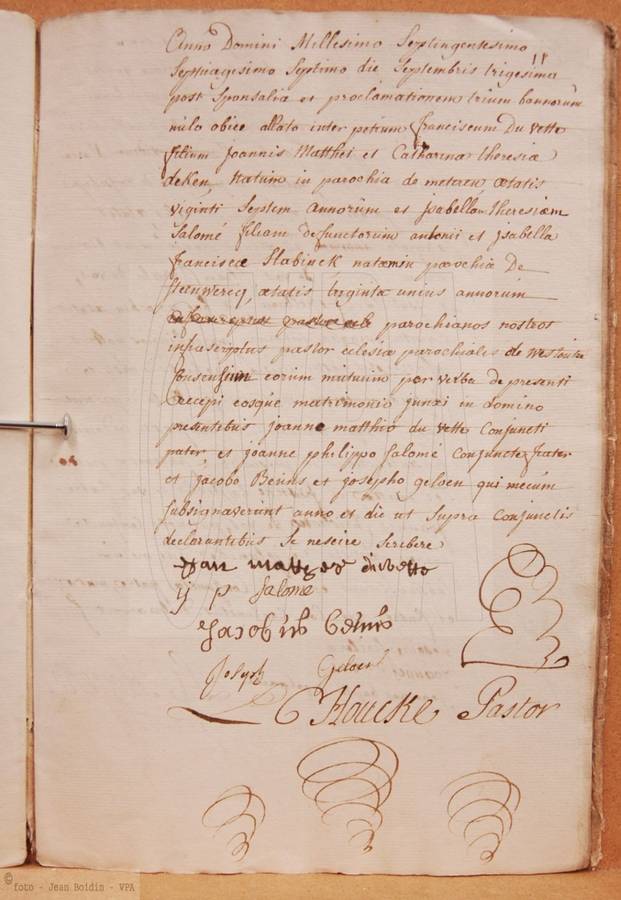 Anno Domini Millesimo Septingentesimo
Septuagesimo Septimo die Septembris trigesima
post Sponsalia et proclamationem trium bannorum
nulo obice allato inter petrum franciscum Du vette
filium Joannis Matthei et Catharina theresiæ
deken Natum in parochia de meteren ætatis
viginti Septem annorum et Isabellam theresiam
Salomé filiam defunctorum antonii et isabella
franciscæ Stabinck natam in parochia De
Steenwercq, ætatis triginta unius annorum
parochianos nostros
infrascriptus pastor eclesiæ parochialis de westoutre
Consensum eorum mutuum per verba de presenti
excepi eosque matrimonio junxi in domino
presentibus joanne matthio du vette Conjuncti
pater et joanne philippo Salomé Conjunctæ frater
et jacobo Beuns et josepho geloen qui mecum
subsignaverunt anno et die ut supra Conjunctis
declarantibus se nescire scribere
Jan duvette
ij p Salome
Jacobüs
Joseph Geloen
Houcke Pastor
© foto - Jean Boidin - VPA